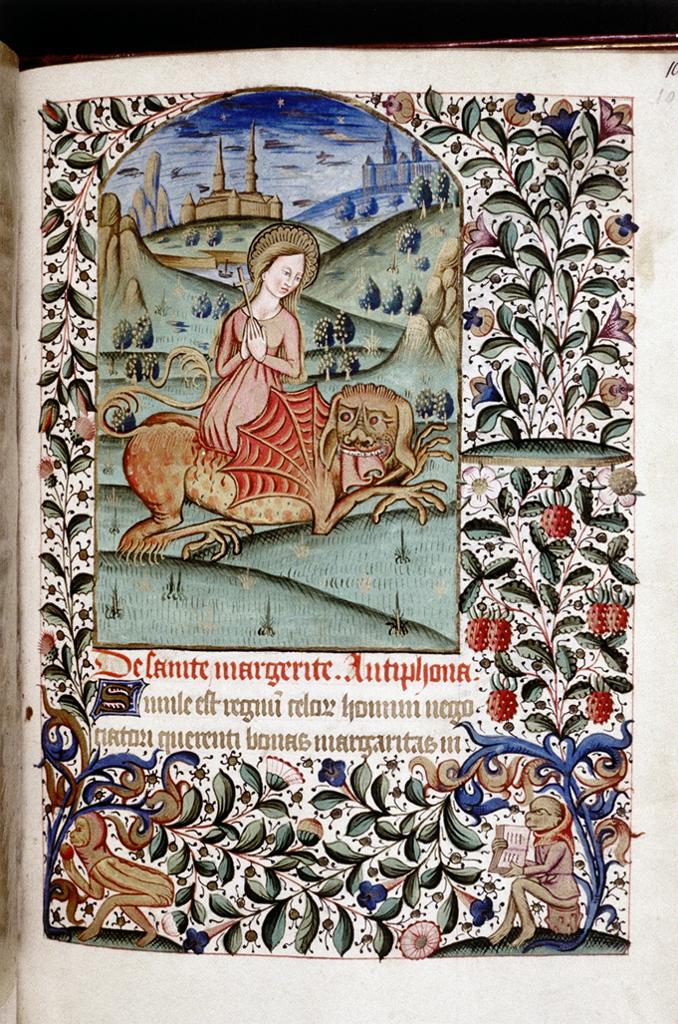 De sancte margerite. Antiphona.
Simile est regnū celoꝝ homini nego
ciatori querenti bonas margaritas in
10